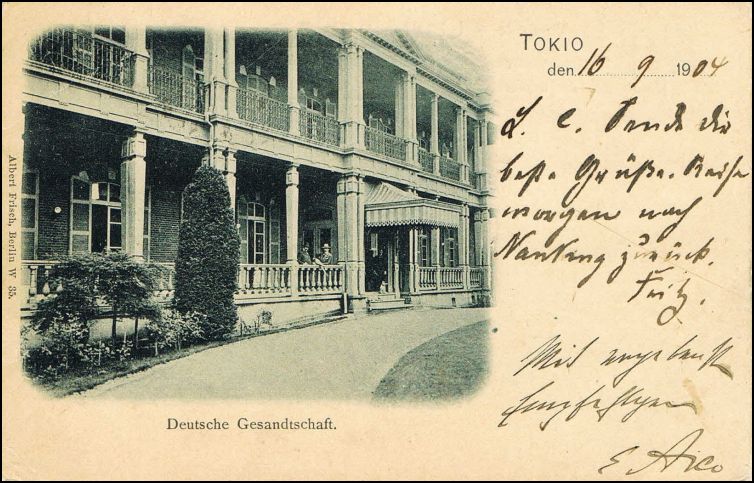 TOKIO
den 16 9 1904
L. C. Sende die
beste Grüße. Reise
morgen nach
Nanking zurück.
Fritz.
Mit ergebenst
Empfehlungen
E Arco
Deutsche Gesandtschaft.
Albert Frisch, Berlin W 35.